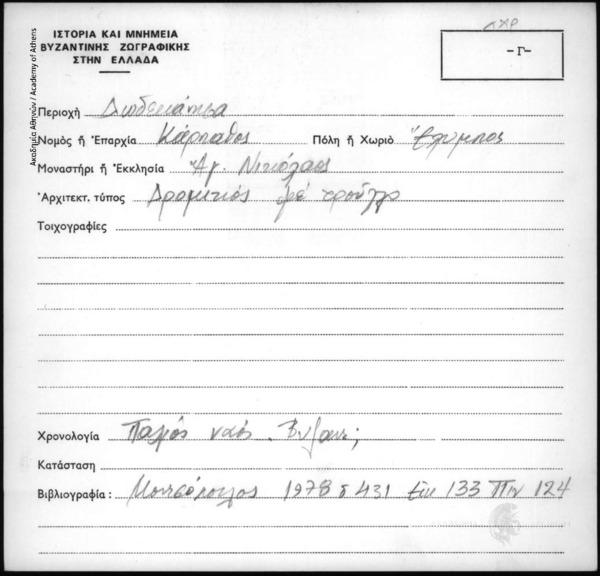 ΑΧΡ
-Γ-
ΙΣΤΟΡΙΑ ΚΑΙ ΜΝΗΜΕΙΑ
ΒΥΖΑΝΤΙΝΗΣ ΖΩΓΡΑΦΙΚΗΣ
ΣΤΗΝ ΕΛΛΑΔΑ
Ακαδημία Αθηνών / Academy of Athens
Περιοχὴ Δωδεκάνησα
Νομὸς ἢ Ἐπαρχία Κάρπαθος Πόλη ἢ Χωριὸ Ἔλυμπος
Μοναστήρι ἢ Ἐκκλησία Ἅγ. Νικόλαος
Ἀρχιτεκτ. τύπος Δρομικός μέ τρούλλο
Τοιχογραφίες
Χρονολογία Παλιός ναός. Βυζαντ;
Κατάσταση
Βιβλιογραφία : Μουτσόπουλος 1978 σ 431 Εικ 133 Πιν 124